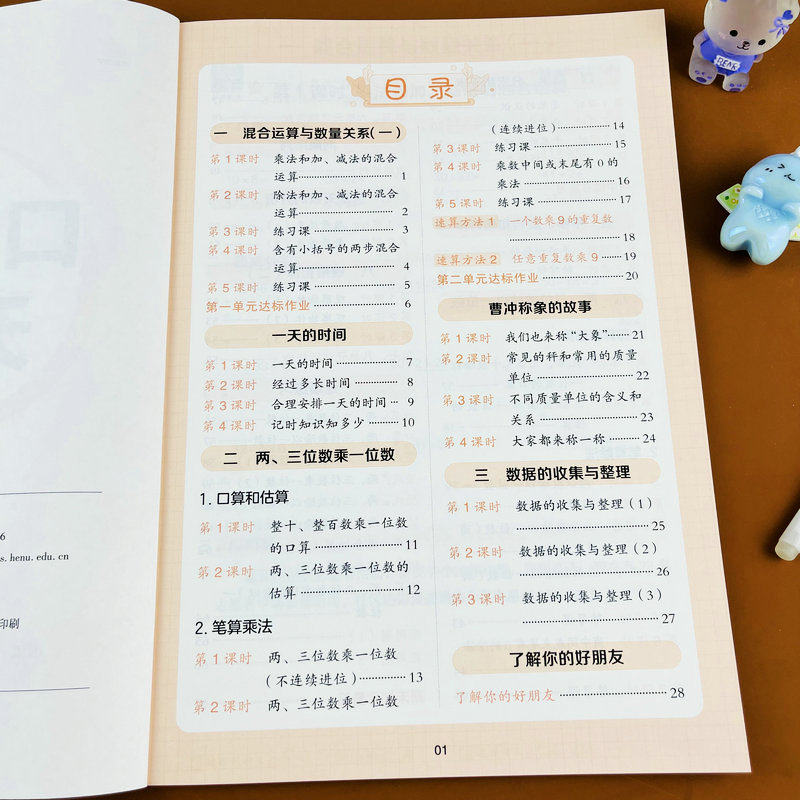 目录
一 混合运算与数量关系(一)
第1课时 乘法和加、减法的混合
运算………………… 1
第2课时 除法和加、减法的混合
运算………………… 2
第3课时 练习课………………… 3
第4课时 含有小括号的两步混合
运算………………… 4
第5课时 练习课………………… 5
第一单元达标作业………………… 6
一天的时间
第1课时 一天的时间………………… 7
第2课时 经过多长时间………………… 8
第3课时 合理安排一天的时间… 9
第4课时 记时知识知多少……… 10
二 两、三位数乘一位数
1.口算和估算
第1课时 整十、整百数乘一位数
的口算………………… 11
第2课时 两、三位数乘一位数的
估算………………… 12
2.笔算乘法
第1课时 两、三位数乘一位数
(不连续进位)………… 13
第2课时 两、三位数乘一位数
(连续进位)………… 14
第3课时 练习课………………… 15
第4课时 乘数中间或末尾有0的
乘法………………… 16
第5课时 练习课………………… 17
速算方法1 一个数乘9的重复数
………………… 18
速算方法2 任意重复数乘9…… 19
第二单元达标作业………………… 20
曹冲称象的故事
第1课时 我们也来称“大象”…… 21
第2课时 常见的秤和常用的质量
单位………………… 22
第3课时 不同质量单位的含义和
关系………………… 23
第4课时 大家都来称一称……… 24
三 数据的收集与整理
第1课时 数据的收集与整理(1)
………………… 25
第2课时 数据的收集与整理(2)
………………… 26
第3课时 数据的收集与整理(3)
………………… 27
了解你的好朋友
了解你的好朋友………………… 28
01
6
s.henu.edu.cn
印刷